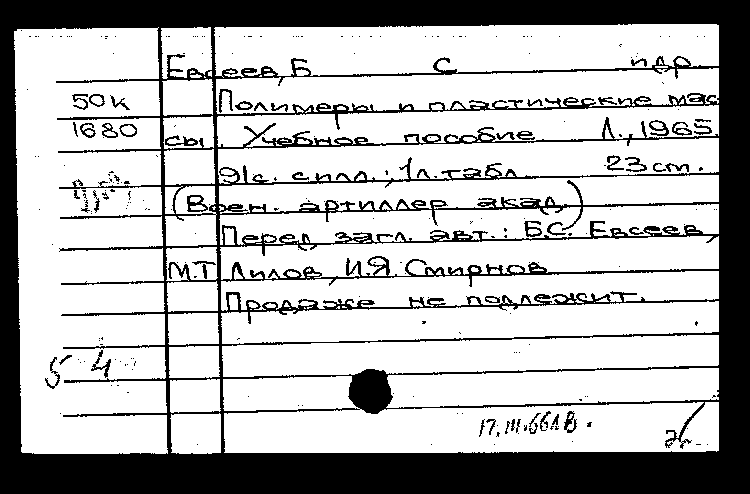 Евсеев, Б С и др
50к Полимеры и пластические мас
1680 сы. Учебное пособие Л., 1965.
91с. с илл.; 1л. табл. 23 cm.
(Воен. артиллер акад.)
Перед загл. авт.: Б.С. Евсеев,
М.Т Лилов, И.Я. Смирнов
Продаже не подлежит.
5 4
17.III.66